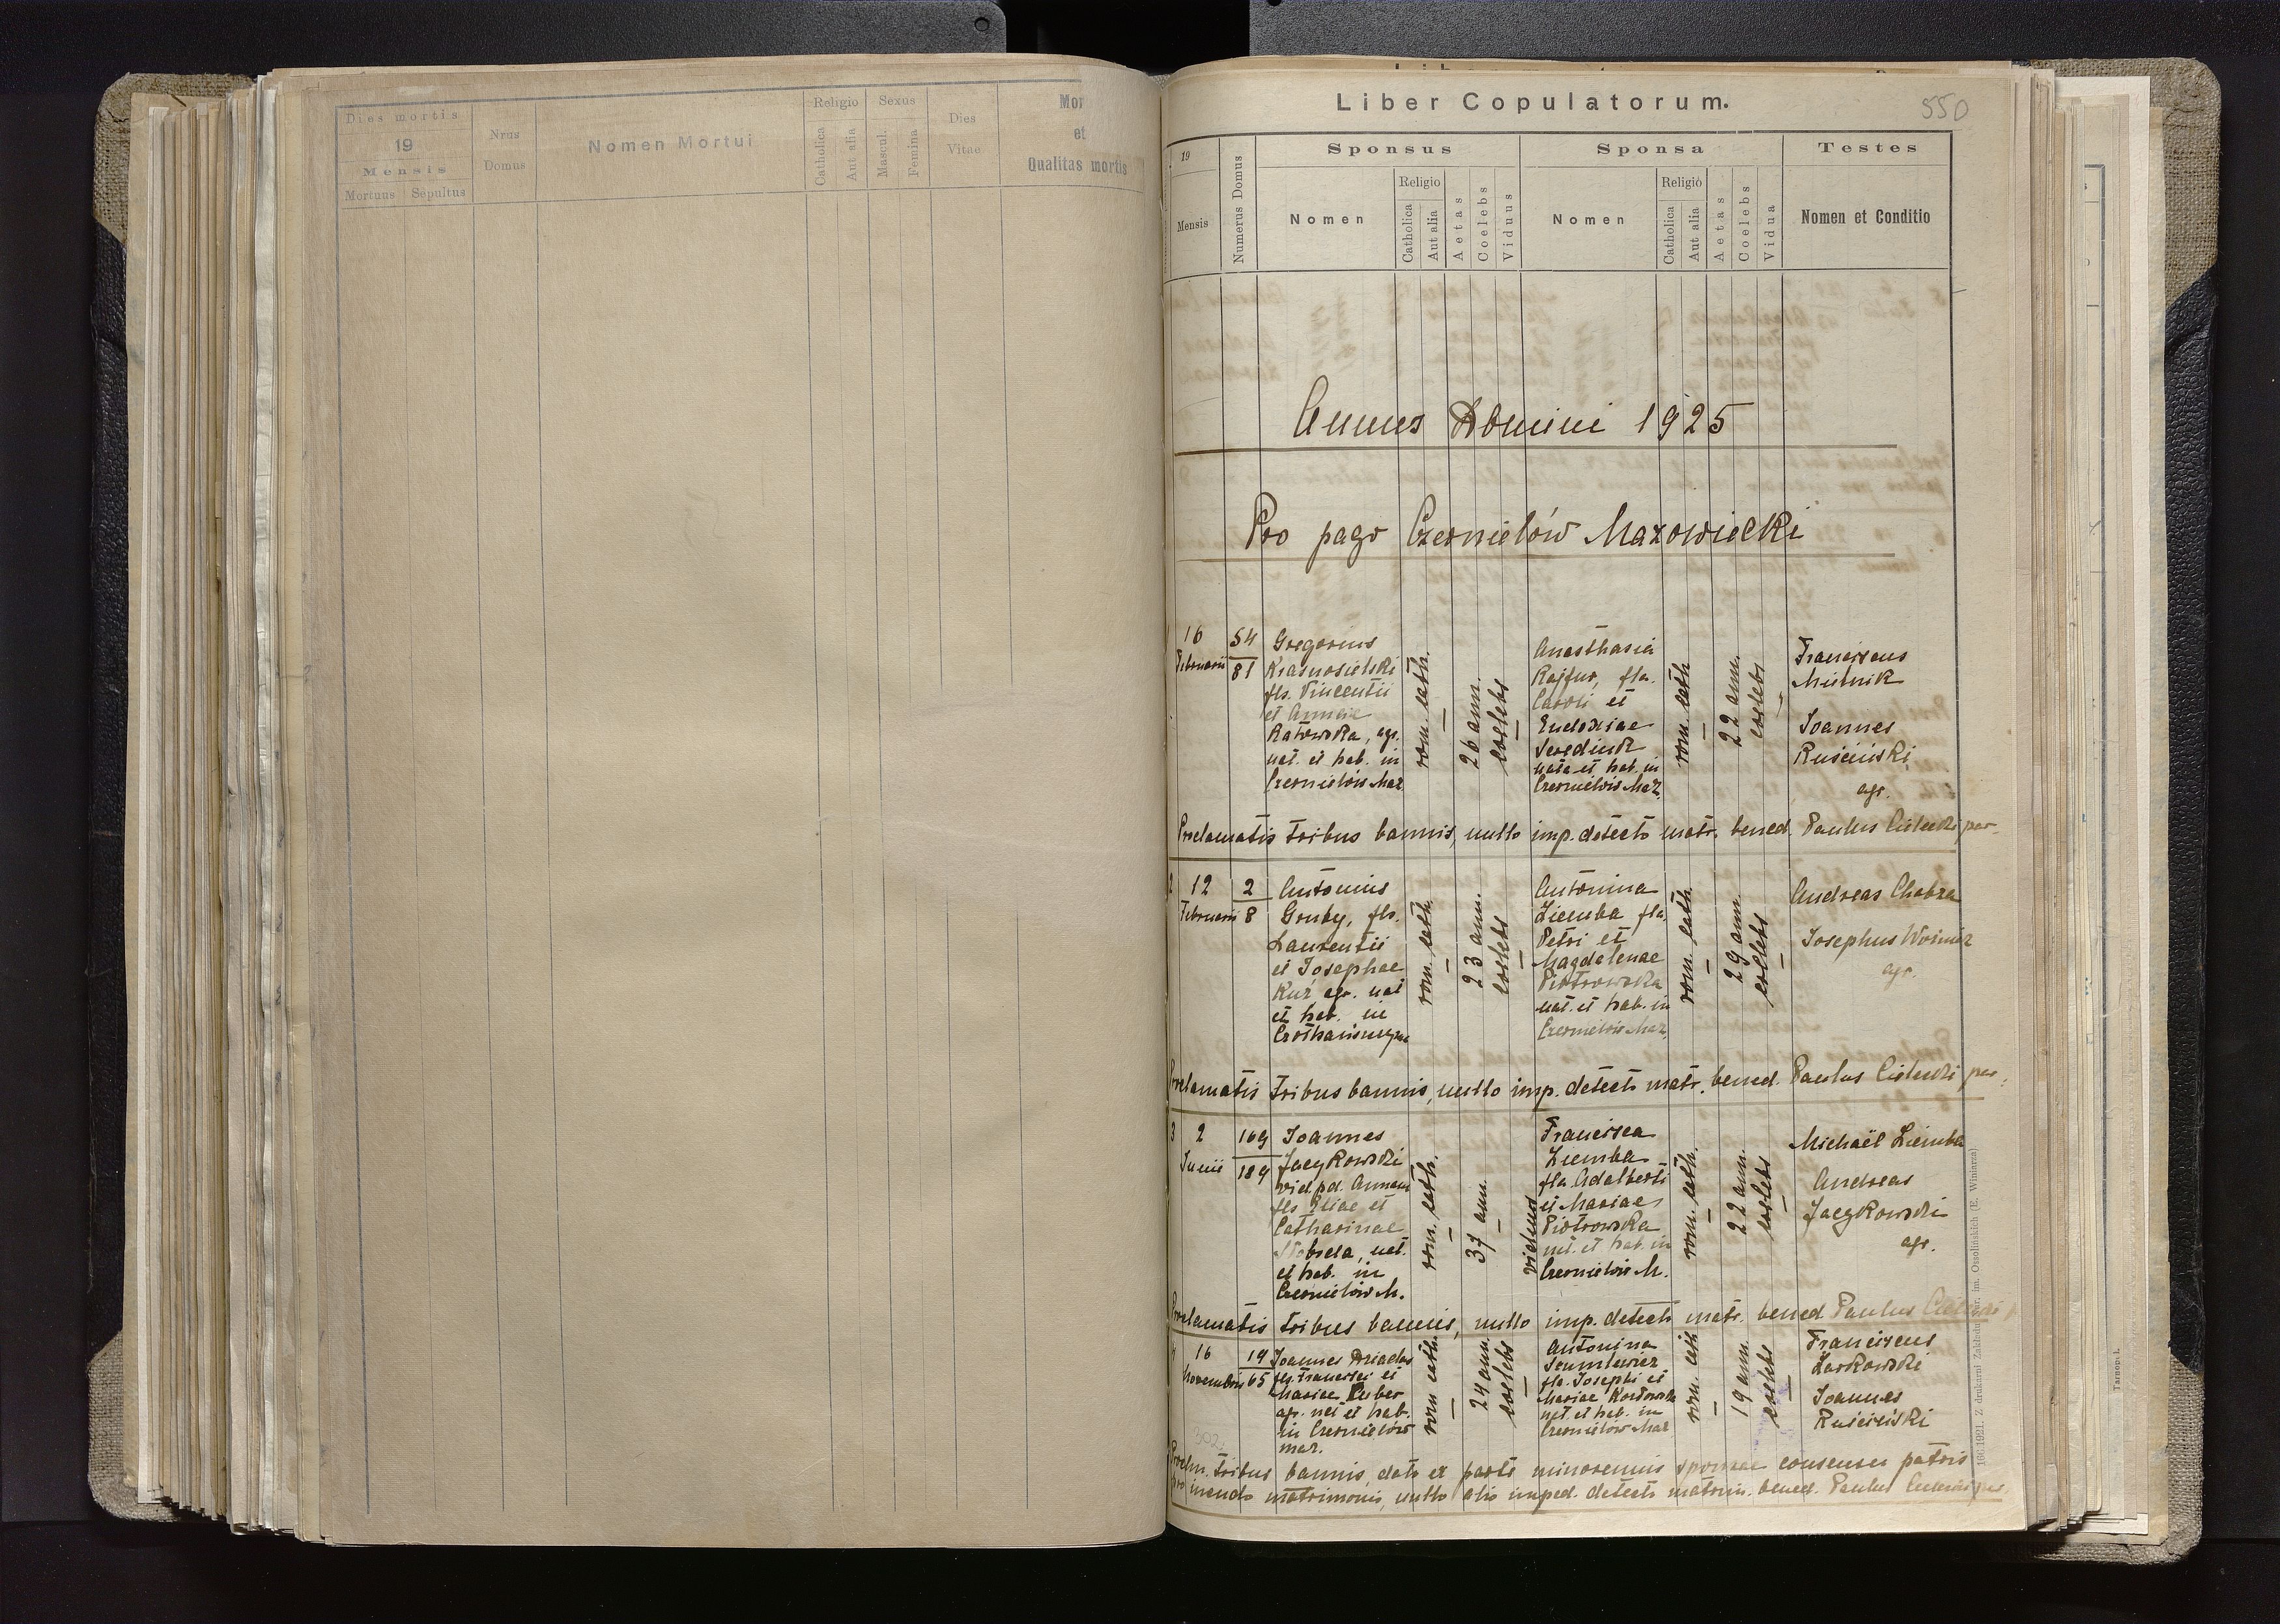 Dies mortis
19
Mensis
Mortuus
Sepultus
Nrus
Domus
Nomen Mortui
Religio
Catholica
Aut alia
Sexus
Mascul.
Femina
Dies
Vitae
Mor
et
Qualitas mortis
Liber Copulatorum.
550
19
Mensis
Numerus Domus
Sponsus
Nomen
Religio
Catholica
Aut alia
Aetas
Coelebs
Viduus
Sponsa
Nomen
Religio
Catholica
Aut alia
Aetas
Coelebs
Vidua
Testes
Nomen et Conditio
Annus Domini 1925
Pro pago Czernielów Mazowiecki
16
Februarii
54
81
Gregorius
Krasnosielski
fls. Vincentii
et Annae
Ratowska, agr.
nat. et hab. in
Czernielów Maz.
rom. cath.
26 ann.
coelebs
Anasthasia
Rajfur, fla.
Caroli et
Eudoxiae
Serediuk
nata et hab. in
Czernielów Maz.
rom. cath.
22 ann.
coelebs
Franciscus
Mielnik
Joannes
Ruściński
agr.
Proclamatis tribus bannis, nullo imp. detecto matr. bened. Paulus par.
2
12
Februarii
2
8
Antonius
Gruby, fls.
Laurentii
et Josephae
Kuź agr. nat
et hab. in
rom. cath.
23 ann.
coelebs
Antonina
Ziemba fla
Petri et
Magdalenae
Piotrowska
nat. et hab. in
Czernielów Maz.
rom. cath
29 ann.
coelebs
Andreas Chabza
Josephus
agr.
Proclamatis tribus bannis, nullo imp. detecto matr. bened. Paulus par.
3
2
Junii
169
189
Joannes
Jaczkowski
vid. pd. Annam
fls Eliae et
Catharinae
nat.
et hab. in
Czernielów M.
rom. cath.
37 ann.
viduus
Francisca
Ziemba
fla Adalberti
et Mariae
Piotrowska
nat. et hab. in
Czernielów M.
rom. cath.
22 ann.
coelebs
Michaël Ziemba
Andreas
Jaczkowski
agr.
Proclamatis tribus bannis, nullo imp. detecto matr. bened Paulus
16
Novembris
19
65
Joannes
fls. Francisci et
Mariae Huber
agr. nat et hab.
in Czernielów
maz.
rom cath.
24 ann.
coelebs
Antonina
fla. Josephi et
Mariae
nat. et hab. in
Czernielów Maz
rom. cath
19 ann.
coelebs
Franciscus
Zarkowski
Joannes
Ruściński
302
Proclm. tribus bannis, dato ex parte minorennis sponsae consensu patris
pro ineundo matrimonio, nullo alio imped. detecto matrim. bened. Paulus par.
1606.1921. Z drukarni Zakładu Nar. im. Ossolińskich (E. Winiarza)
Tarnop. I.